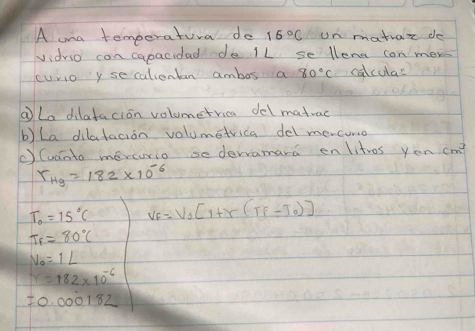 A una temperatura de 15°C un matraz de
vidrio con capacidad de 1L se llena con mer-
curio y se calientan ambos a 80°C calcula:
a) La dilatación volumétrica del matrac
b) La dilatación volumétrica del mercurio
c) Cuánto mercurio se derramará en litros y en cm³
γHg = 182 x 10⁻⁶
T₀ = 15°C
TF = 80°C
V₀ = 1L
γ = 182 x 10⁻⁶
= 0.000182
VF = V₀ [1 + γ (TF - T₀)]